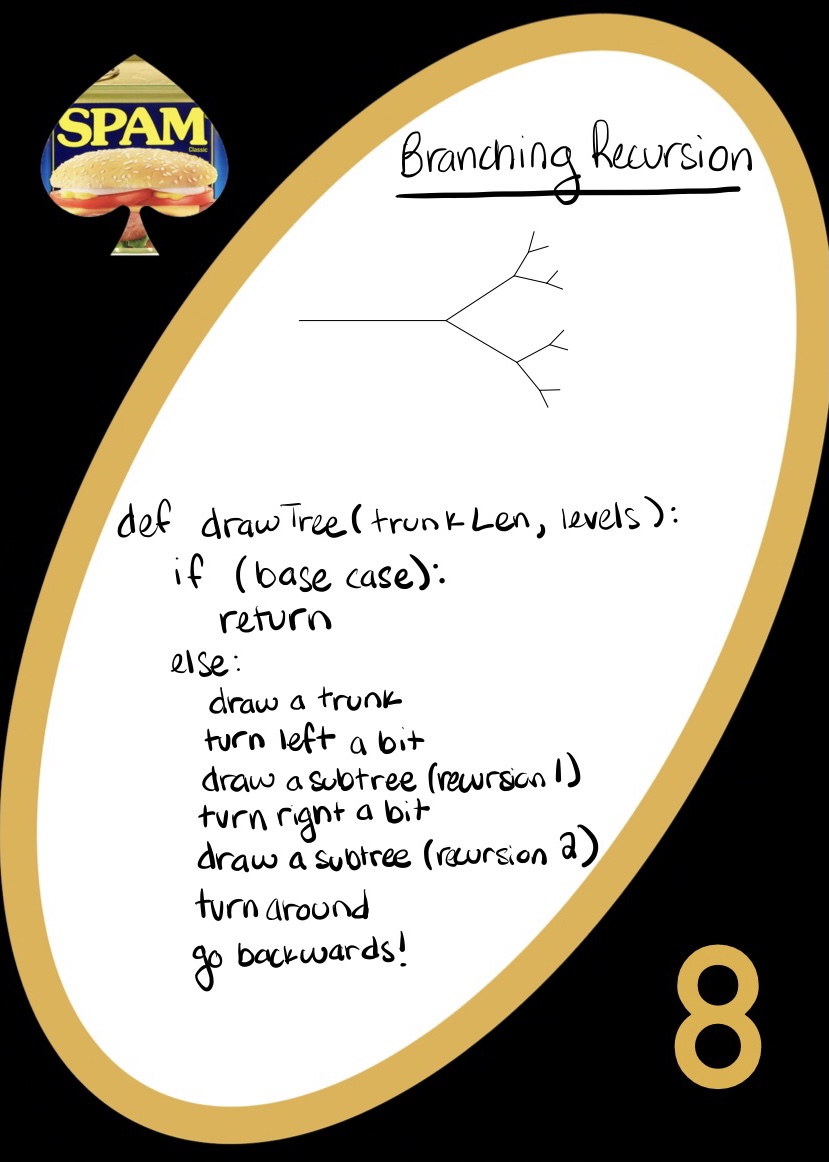 SPAM
Classic
Branching Recursion
def drawTree(trunkLen, levels):
if (base case):
return
else:
draw a trunk
turn left a bit
draw a subtree (recursion 1)
turn right a bit
draw a subtree (recursion 2)
turn around
go backwards!
8